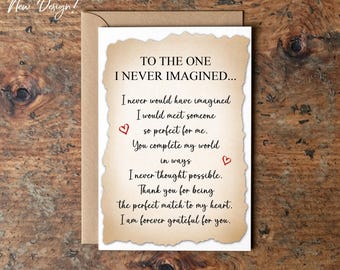 New Design!
TO THE ONE
I NEVER IMAGINED...
I never would have imagined
I would meet someone
so perfect for me.
You complete my world
in ways
I never thought possible.
Thank you for being
the perfect match to my heart.
I am forever grateful for you.